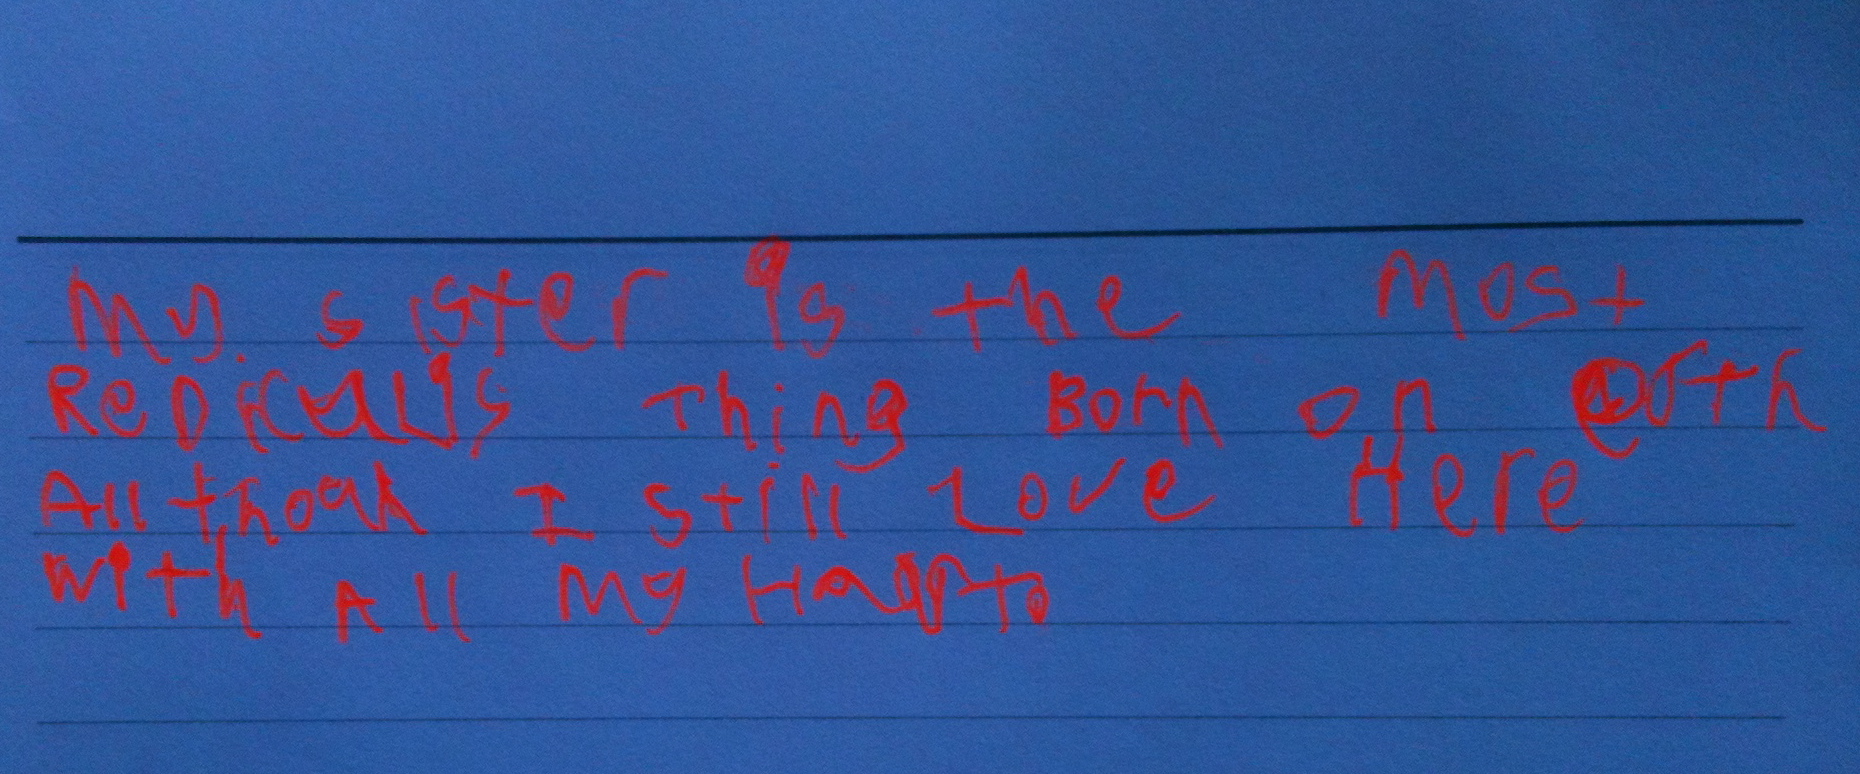 My. sister is the Most
ReDiculis Thing Born on earth
All thoah I still Love Here
with All My Hart